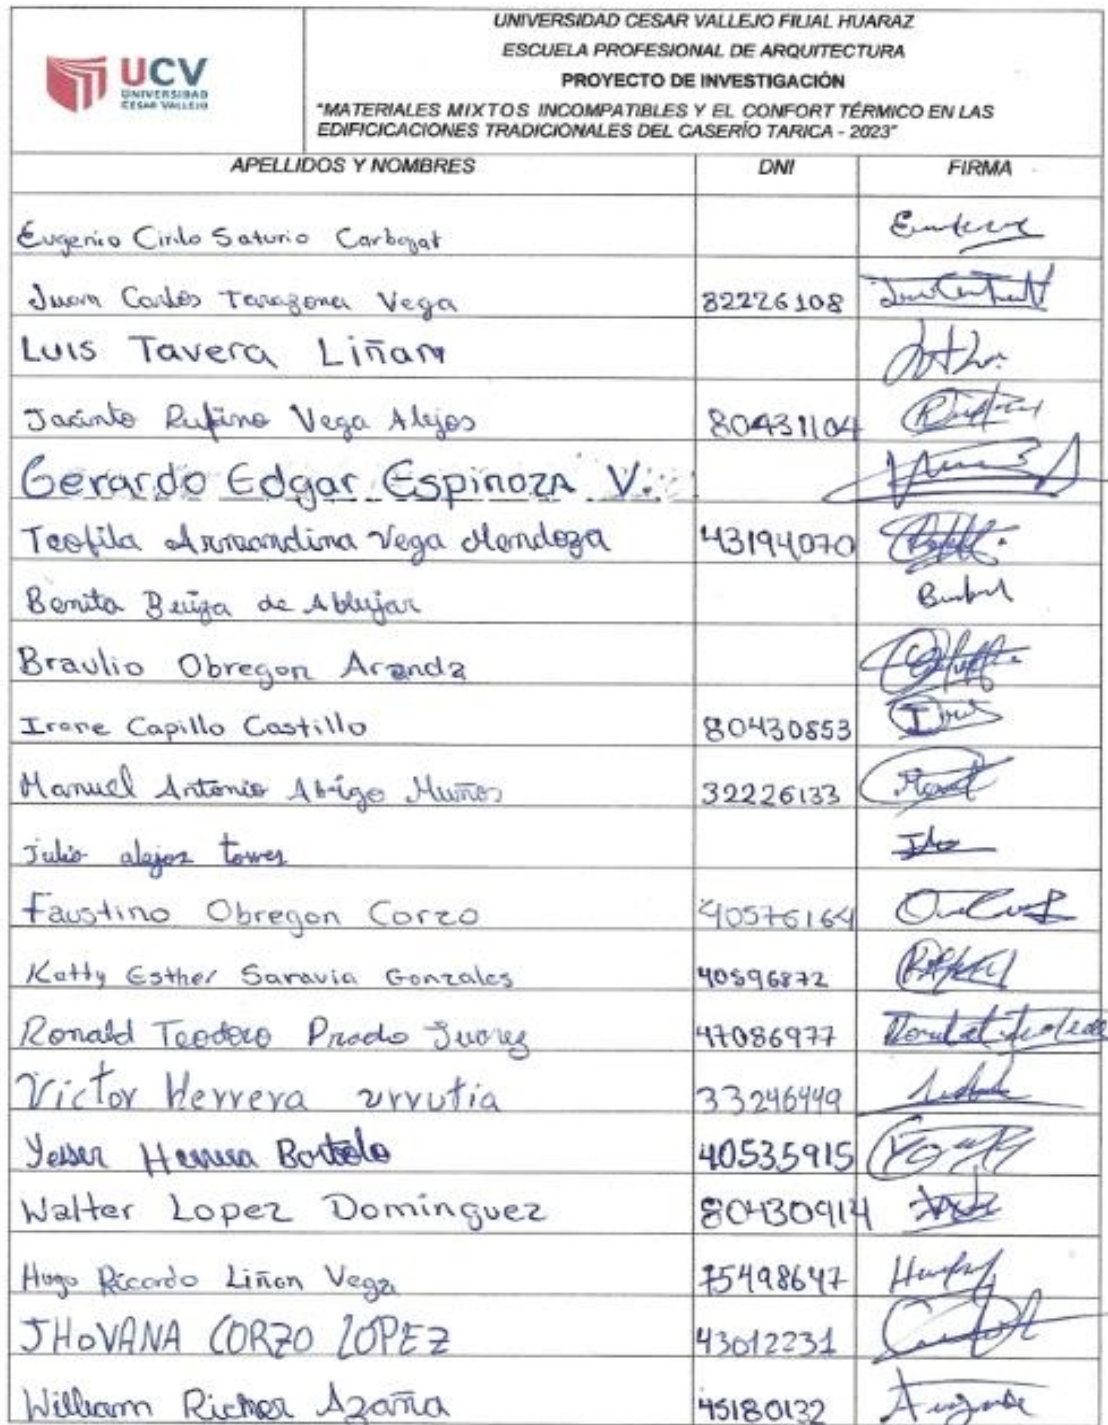 UCV
UNIVERSIDAD
CESAR VALLEJO
UNIVERSIDAD CESAR VALLEJO FILIAL HUARAZ
ESCUELA PROFESIONAL DE ARQUITECTURA
PROYECTO DE INVESTIGACIÓN
"MATERIALES MIXTOS INCOMPATIBLES Y EL CONFORT TÉRMICO EN LAS
EDIFICICACIONES TRADICIONALES DEL CASERÍO TARICA - 2023"
APELLIDOS Y NOMBRES DNI FIRMA
Eugenio Cirilo Saturio
Juan Carlos Tarazona Vega 32226108
Luis Tavera Liñan
Jacinto Rufino Vega Alejos 80431104
Gerardo Edgar Espinoza V.
Teofila Armandina Vega Mendoza 43194070
Benita de
Braulio Obregon Aranda
Irene Capillo Castillo 80430853
Manuel Antonio Muños 32226133
Julio alejos torres
Faustino Obregon Corzo 40576164
Katty Esther Saravia Gonzales 40596872
Ronald Teodoro Prado Juarez 47086977
Victor Herrera urrutia 33246449
Yesser Herrera 40535915
Walter Lopez Domínguez 80430914
Hugo Ricardo Liñan Vega 75498647
JHOVANA CORZO LOPEZ 43012231
William Azaña 45180132